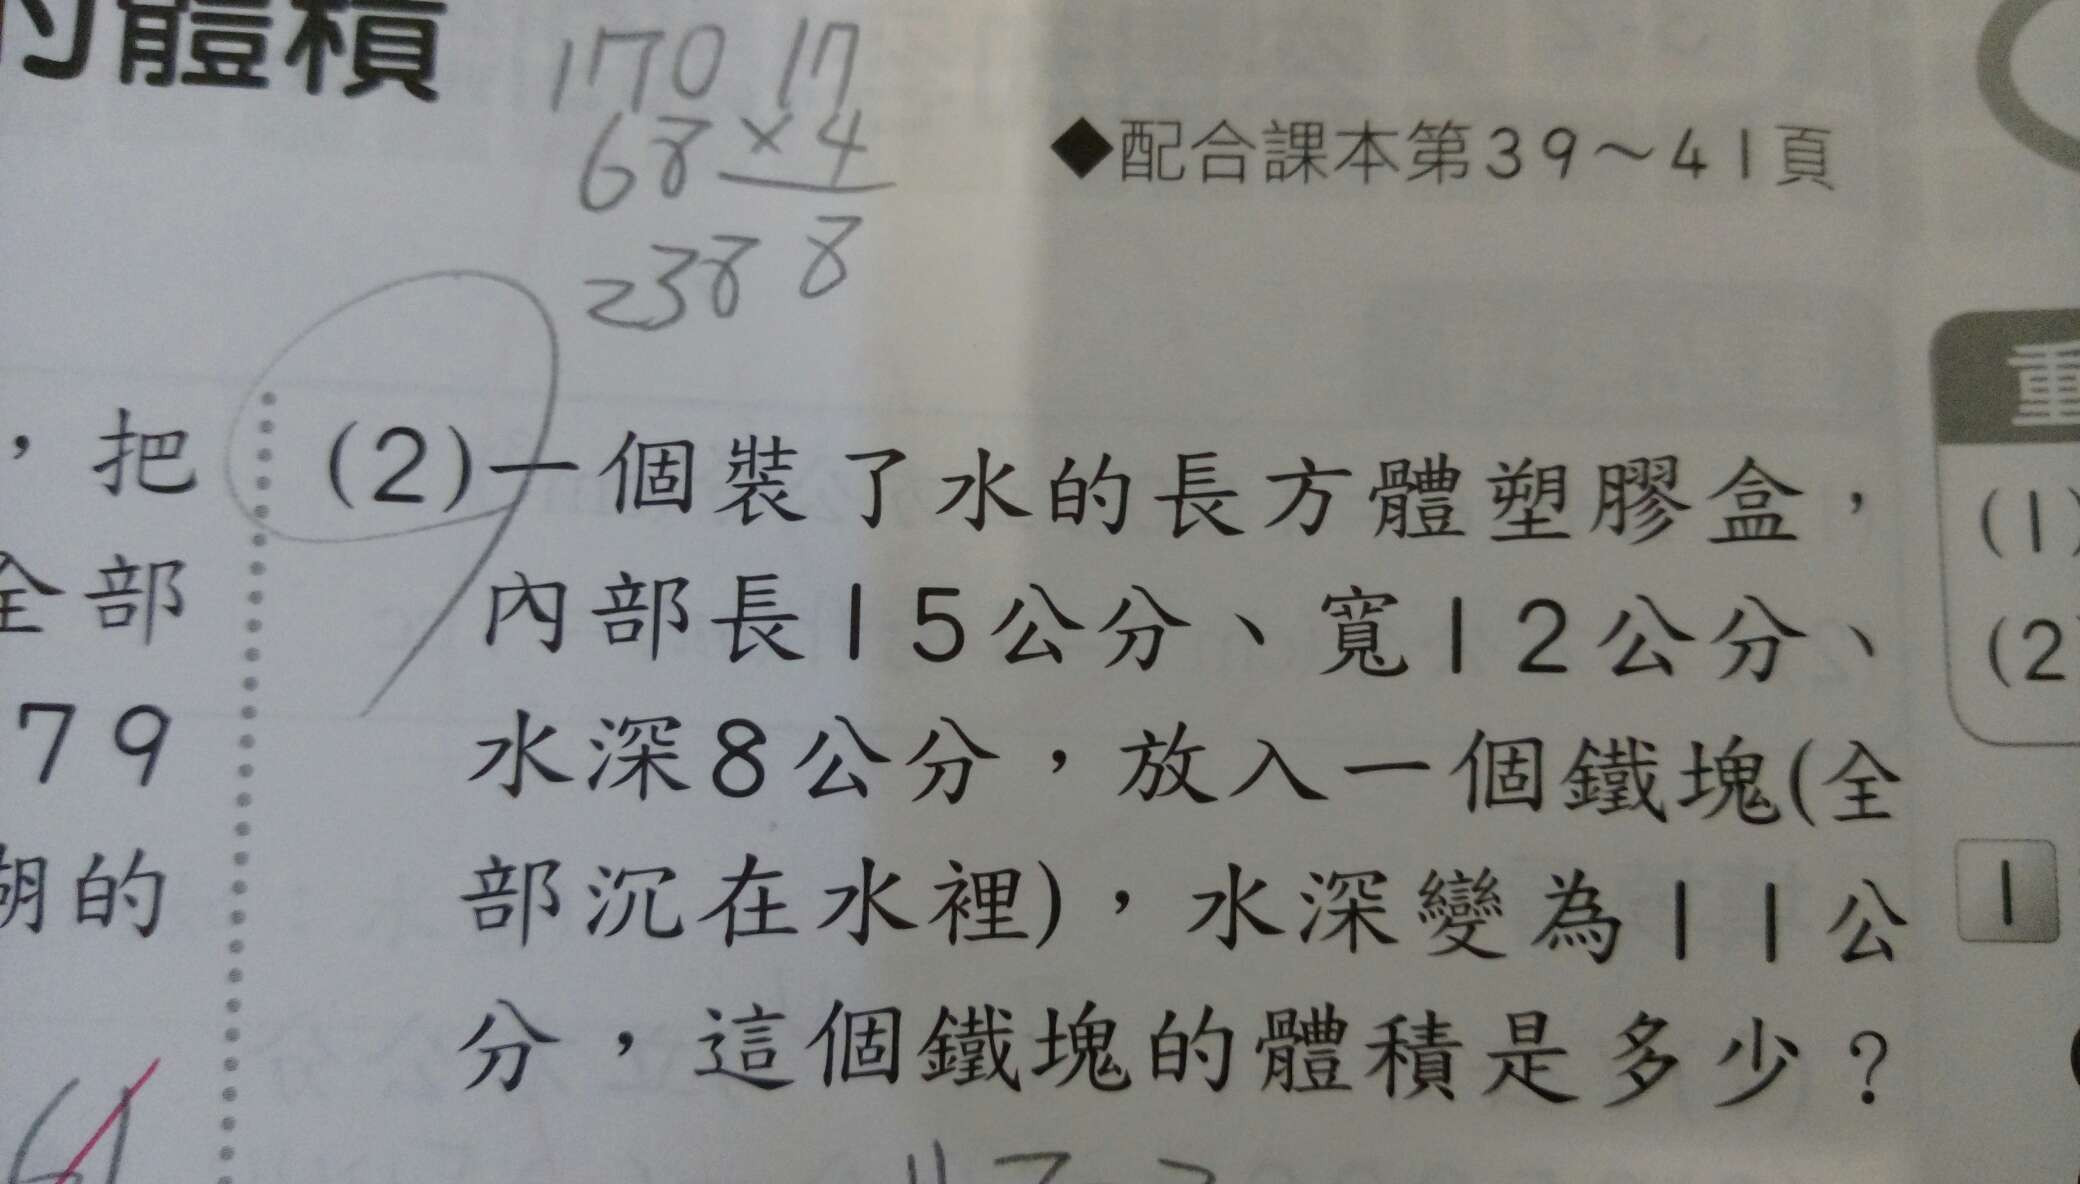 的體積
170 17
68 × 4
238 8
◆配合課本第39～41頁
，把
全部
79
胡的
(2)一個裝了水的長方體塑膠盒，
內部長15公分、寬12公分、
水深8公分，放入一個鐵塊(全
部沉在水裡)，水深變為11公
分，這個鐵塊的體積是多少？
重
(1)
(2
1